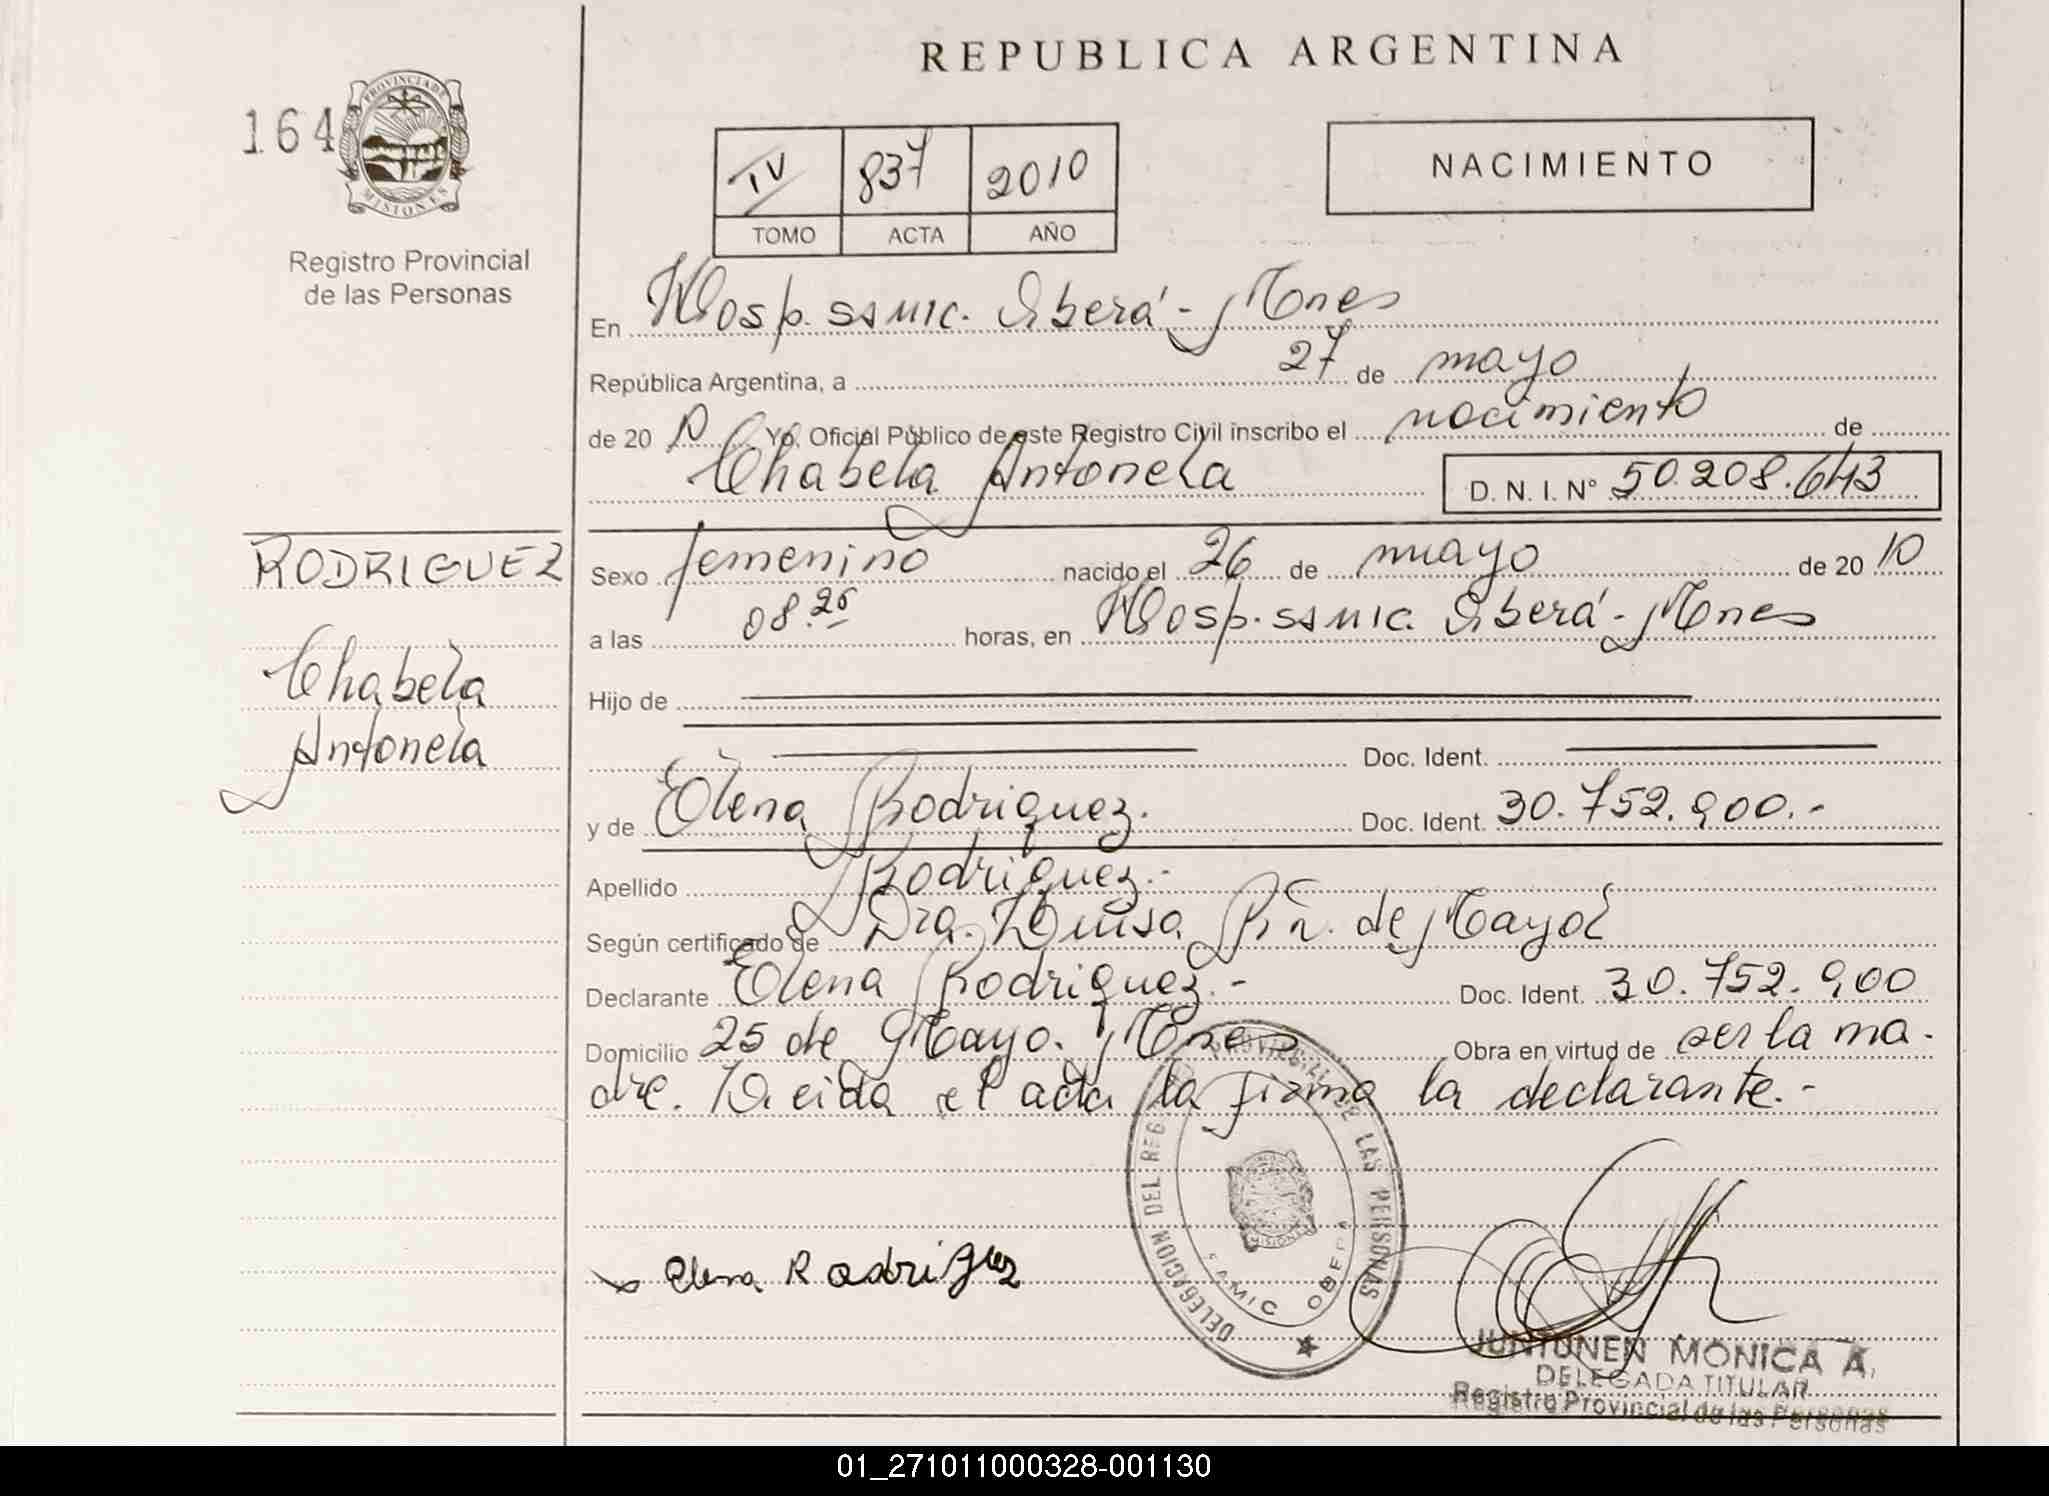 REPUBLICA ARGENTINA
164
PROVINCIA DE
MISIONES
Registro Provincial
de las Personas
IV 837 2010
TOMO ACTA AÑO
NACIMIENTO
En Hosp. SAMIC. Oberá - Mnes
República Argentina, a 27 de mayo
de 20 10 Yo, Oficial Público de este Registro Civil inscribo el nacimiento de
Chabela Antonela
D. N. I. N° 50.208.643
RODRIGUEZ
Chabela
Antonela
Sexo femenino nacido el 26 de mayo de 20 10
a las horas, en Hosp. SAMIC. Oberá - Mnes
Hijo de
Doc. Ident.
y de Elena Rodriguez. Doc. Ident. 30.752.900.-
Apellido Rodriguez.-
Según certificado de Dra. Luisa de Mayol
Declarante Elena Rodriguez.- Doc. Ident. 30.752.900
Domicilio 25 de Mayo. Mnes Obra en virtud de ser la ma-
dre. Leida el acta la firma la declarante.-
DELEGACION DEL REG. PROVINCIAL DE LAS PERSONAS
MISIONES
SAMIC OBERA
Elena Rodriguez
JUNTUNEN MONICA A.
DELEGADA TITULAR
Registro Provincial de las Personas
01_271011000328-001130